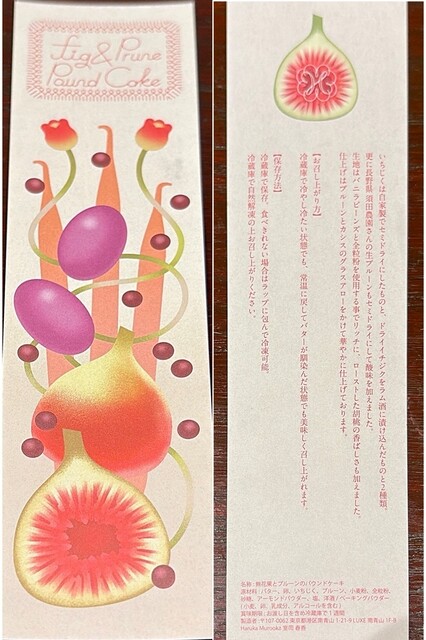 Fig & Prune
Pound Cake
いちじくは自家製でセミドライにしたものと、ドライイチジクをラム酒に漬け込んだものと2種類。
更に長野県 須田農園さんの生プルーンもセミドライにして酸味を加えました。
生地はバニラビーンズと全粒粉を使用する事でリッチに、ローストした胡桃の香ばしさも加えました。
仕上げはプルーンとカシスのグラスアローをかけて華やかに仕上げております。
【お召し上がり方】
冷蔵庫で冷やし冷たい状態でも、常温に戻してバターが馴染んだ状態でも美味しく召し上がれます。
【保存方法】
冷蔵庫で保存、食べきれない場合はラップに包んで冷凍可能。
冷蔵庫で自然解凍の上お召し上がりください。
名称：無花果とプルーンのパウンドケーキ
原材料：バター、卵、いちじく、プルーン、小麦粉、全粒粉、
砂糖、アーモンドパウダー、塩、洋酒／ベーキングパウダー
（小麦、卵、乳成分、アルコールを含む）
賞味期限：お渡し日を含め冷蔵庫で1週間
製造者：〒107-0062 東京都港区南青山 1-21-9 LUKE 南青山 1F-B
Haruka Murooka 室岡 春香